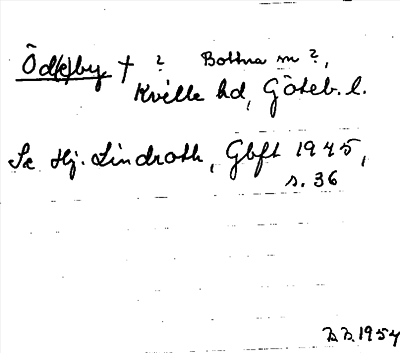 Öd(e)by † ? Bottna sn ?,
Kville hd, Göteb. l.
Se Hj. Lindroth, Gbft 1945,
s. 36
B.B. 1954